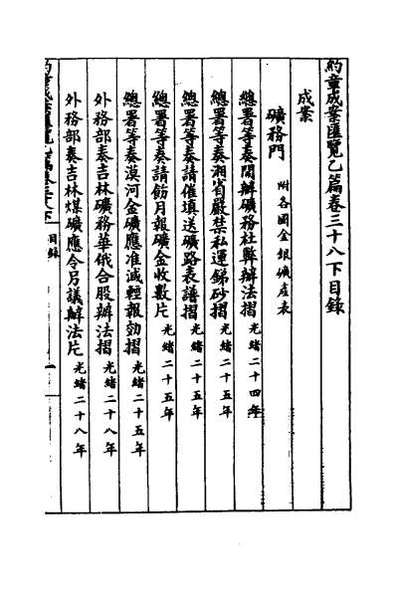 約章成案匯覽乙篇卷三十八下目錄
成案
礦務門 附各國金銀礦產表
總署等奏開辦礦務杜弊辦法摺 光緒二十四年
總署等奏湘省嚴禁私運銻砂摺 光緒二十五年
總署等奏請催填送礦路表譜摺 光緒二十五年
總署等奏請飭月報礦金收數片 光緒二十五年
總署等奏漠河金礦應准減輕報効摺 光緒二十五年
外務部奏吉林礦務華俄合股辦法摺 光緒二十八年
外務部奏吉林煤礦應令另議辦法片 光緒二十八年
目錄